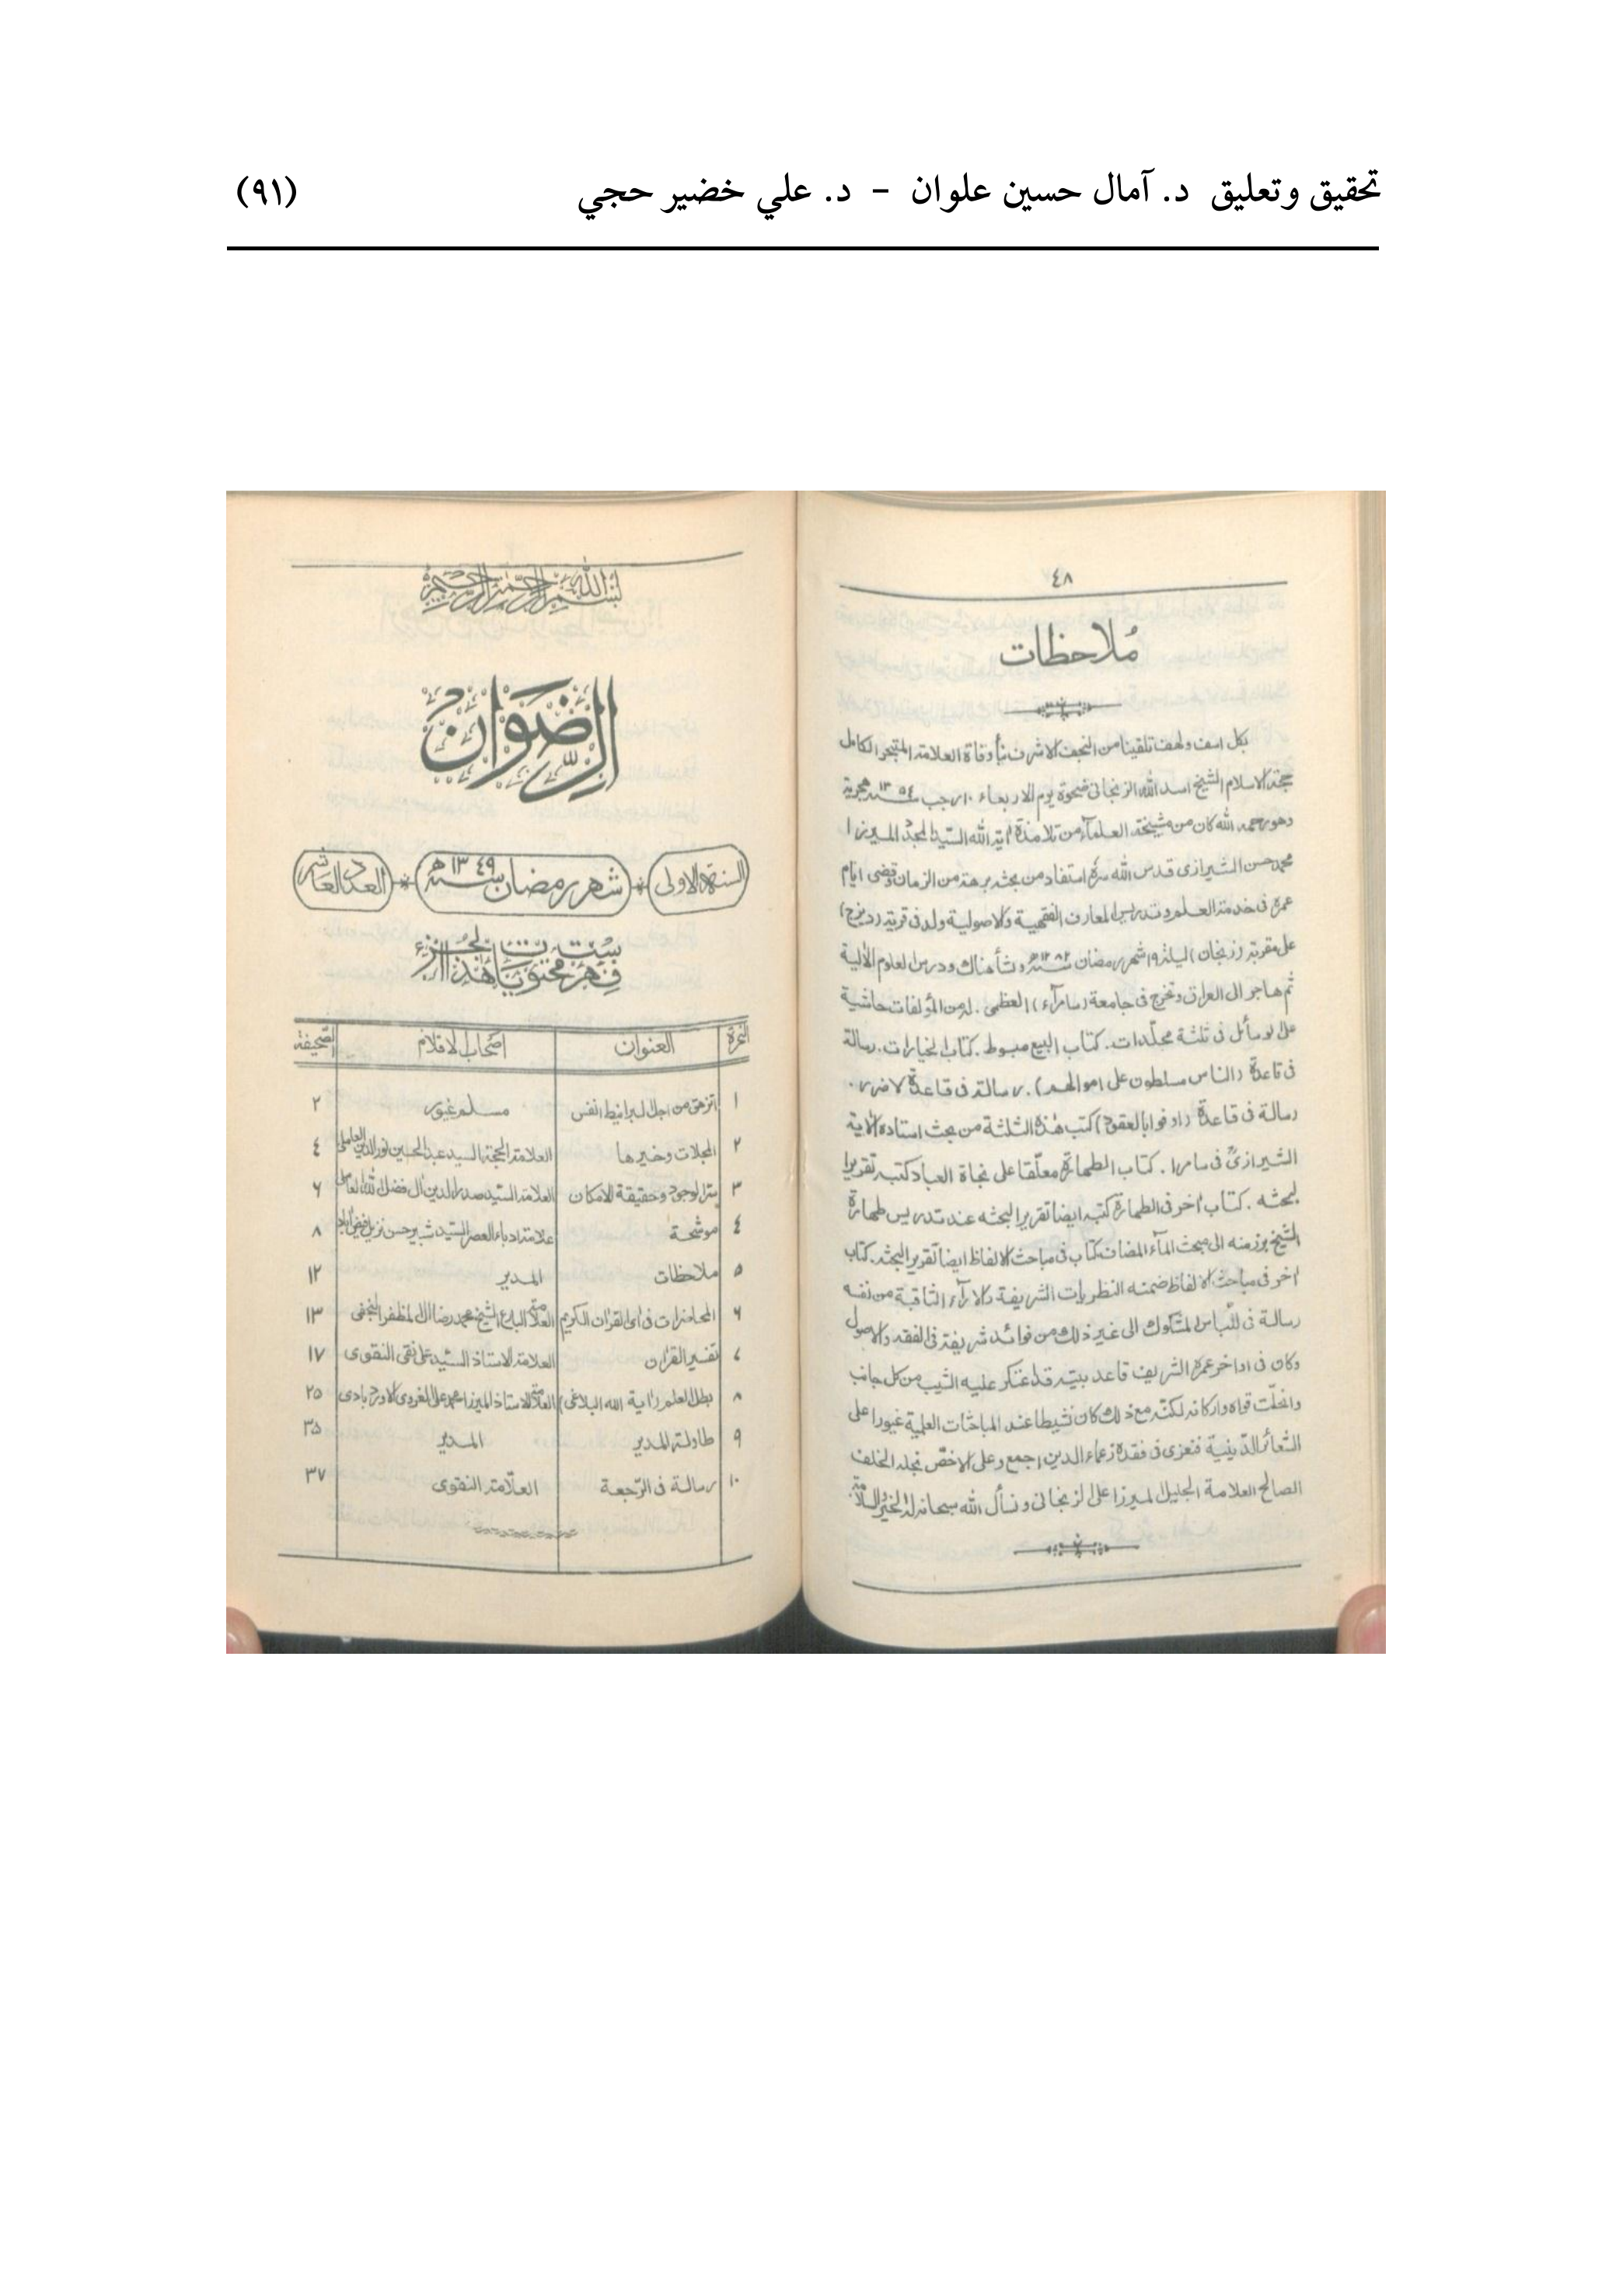 تحقيق وتعليق د. آمال حسين علوان – د. علي خضير حجي (٩١)
٤٨
مُلاحظات
بكل اسف ولهف تلقينا من النجف الاشرف نبأ وفاة العلامة المتبحر الكامل
حجة الاسلام الشيخ اسد الله الزنجانى ضحوة يوم الاربعاء ١٠ رجب سنة ١٣٥٤ هجرية
وهو رحمه الله كان من مشيخة العلماء من تلامذة اية الله السيد المجدد الميرزا
محمد حسن الشيرازى قدس الله سره استفاد من بحثه برهة من الزمان وقضى ايام
عمره فى خدمة العلم وتدريس المعارف الفقهية والاصولية ولد فى قرية (ديزج)
على مقربة (زنجان) ليلة ١٩ شهر رمضان سنة ١٢٨٢ ونشأ هناك ودرس العلوم الالية
ثم هاجر الى العراق وتخرج فى جامعة (سامرآء) العظمى . له من المؤلفات حاشية
على الوسائل فى ثلثة مجلّدات . كتاب البيع مبسوط . كتاب الخيارات . رسالة
فى قاعدة (الناس مسلطون على اموالهم) . رسالة فى قاعدة لاضرر .
رسالة فى قاعدة (اوفوا بالعقود) كتب هذه الثلثة من بحث استاده الاية
الشيرازى فى سامرا . كتاب الطهارة معلّقا على نجاة العباد كتبه تقريرا
لبحثه . كتاب اخر فى الطهارة كتبه ايضا تقريرا لبحثه عند تدريس طهارة
الشيخ برز منه الى مبحث المآء المضاف كتاب فى مباحث الالفاظ ايضا تقريرا لبحثه . كتاب
اخر فى مباحث الالفاظ ضمنه النظريات الشريفة والارآء الثاقبة من نفسه
رسالة فى اللّباس المشكوك الى غير ذلك من فوائد شريفة فى الفقه والاصول
وكان فى اواخر عمره الشريف قاعد بيته قد عكر عليه الشيب من كل جانب
وانحلّت قواه واركانه لكنّه مع ذلك كان نشيطا عند المباحثات العلمية غيورا على
الشعائر الدّينية فنعزى فى فقده زعماء الدين اجمع وعلى الاخصّ نجله الخلف
الصالح العلامة الجليل الميرزا على الزنجانى ونسأل الله سبحانه له الخير والسلامة
بسم الله الرحمن الرحيم
الرضوان
السنة الاولى * شهر رمضان سنة ١٣٤٩ ه * العدد العاشر
فهرست محتويات هذا الجزء
النمرة العنوان اصحاب الاقلام الصحيفة
١ اتزهق من اجل لبرانيط انفس مسلم غيور ٢
٢ المجلات وخيرها العلامة الحجة السيد عبد الحسين نور الدين العاملى ٤
٣ سر الوجود وحقيقة الامكان العلامة السيد صدر الدين ال فضل الله العاملى ٦
٤ موشحة علامة ادباء العصر السيد شبير حسن نزيل فيض اباد ٨
٥ ملاحظات المدير ١٢
٦ المحاضرات فى اى القران الكريم العلامة البارع الشيخ محمد رضا ال المظفر النجفى ١٣
٧ تفسير القران العلامة الاستاذ السيد على نقى النقوى ١٧
٨ بطل العلم (اية الله البلاغى) العلامة الاستاذ الميرزا محمد على الغروى الاوردبادى ٢٥
٩ طاولة المدير المدير ٣٥
١٠ رسالة فى الرّجعة العلّامة النقوى ٣٧